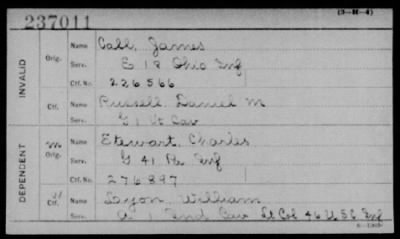 (3-H-4)
237011
INVALID
Orig.
Name Call, James
Serv. E 18 Ohio Inf
Ctf. No. 226566
Ctf.
Name Russell, Daniel M
Serv. G 1 Vt Cav
DEPENDENT
Orig.
Name Stewart, Charles
Serv. G 41 Inf
Ctf. No. 276897
Ctf.
Name Lyon, William
Serv. 1 Ind Cav Lt Col 46 U S C Inf